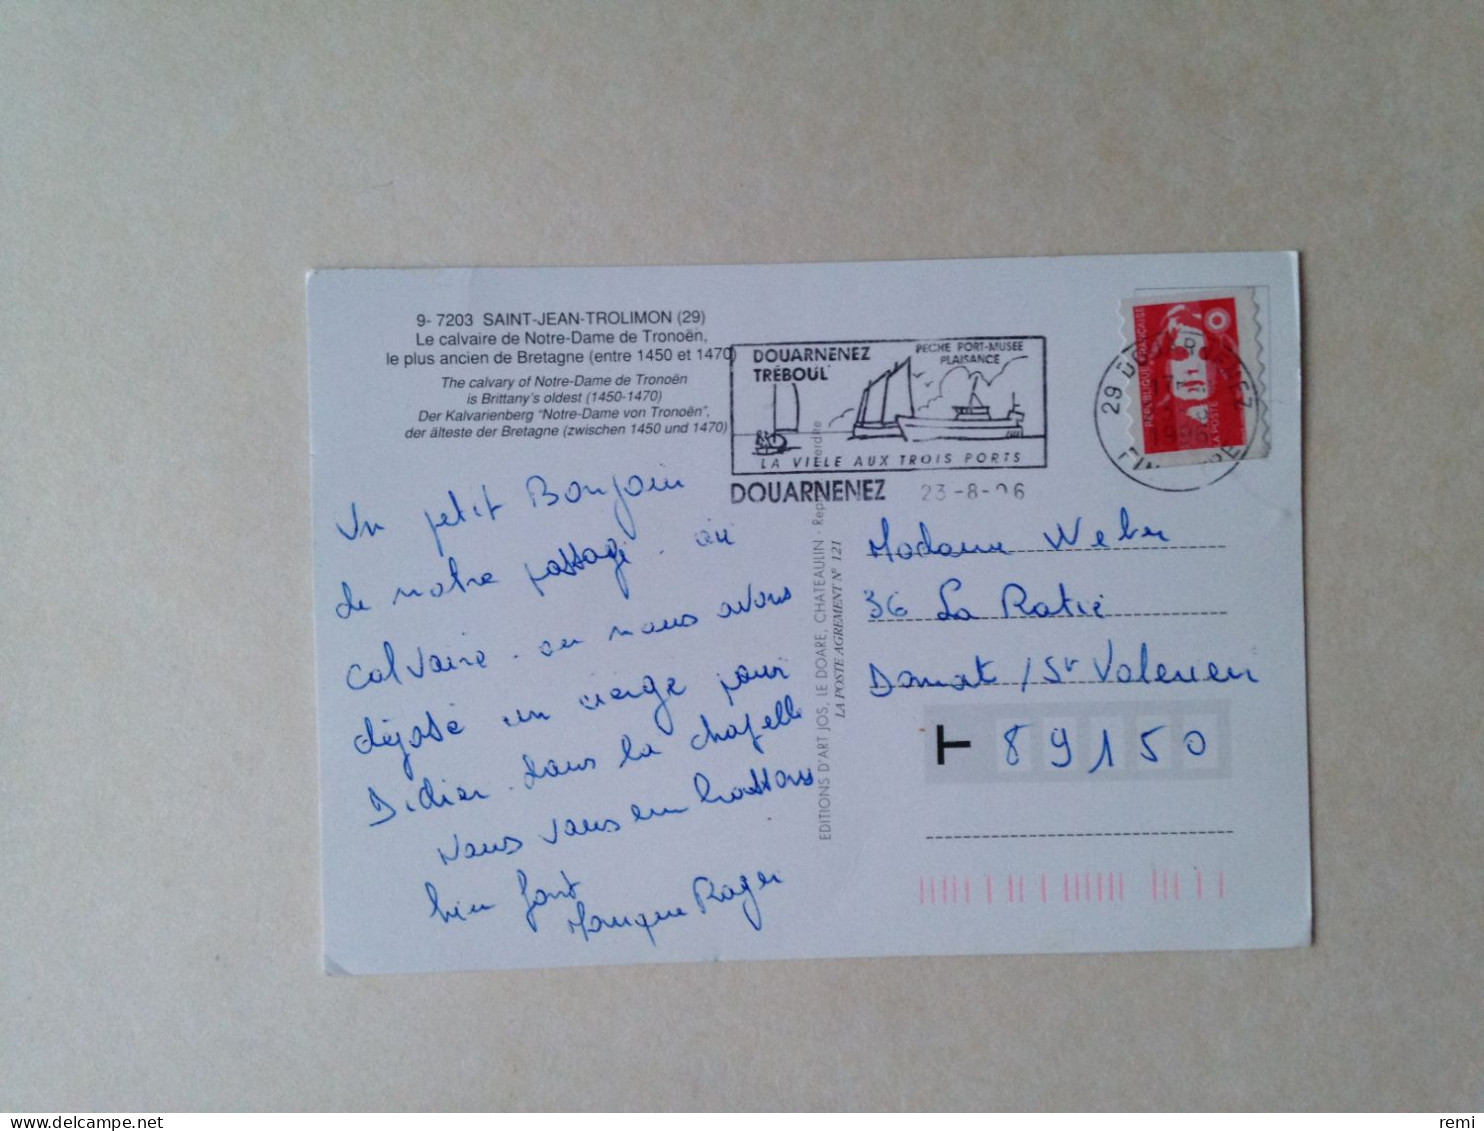 9- 7203 SAINT-JEAN-TROLIMON (29)
Le calvaire de Notre-Dame de Tronoën,
le plus ancien de Bretagne (entre 1450 et 1470)
The calvary of Notre-Dame de Tronoën
is Brittany's oldest (1450-1470)
Der Kalvarienberg "Notre-Dame von Tronoën",
der älteste der Bretagne (zwischen 1450 und 1470)
DOUARNENEZ
TRÉBOUL
PECHE PORT-MUSEE
PLAISANCE
LA VILLE AUX TROIS PORTS
DOUARNENEZ 23-8-96
29 DOUARNENEZ
1996
FINISTERE
REPUBLIQUE FRANÇAISE
LA POSTE
Un petit Bonjour
de notre passage au
calvaire. ou nous avons
déposé un cierge pour
Didier. dans la chapelle
Nous vous embrassons
bien fort
Roger
EDITIONS D'ART JOS, LE DOARE, CHATEAULIN - Rep
LA POSTE AGREMENT N° 121
Madame Weber
36 La Ratie
Domat / St Valerien
T 89150
remi